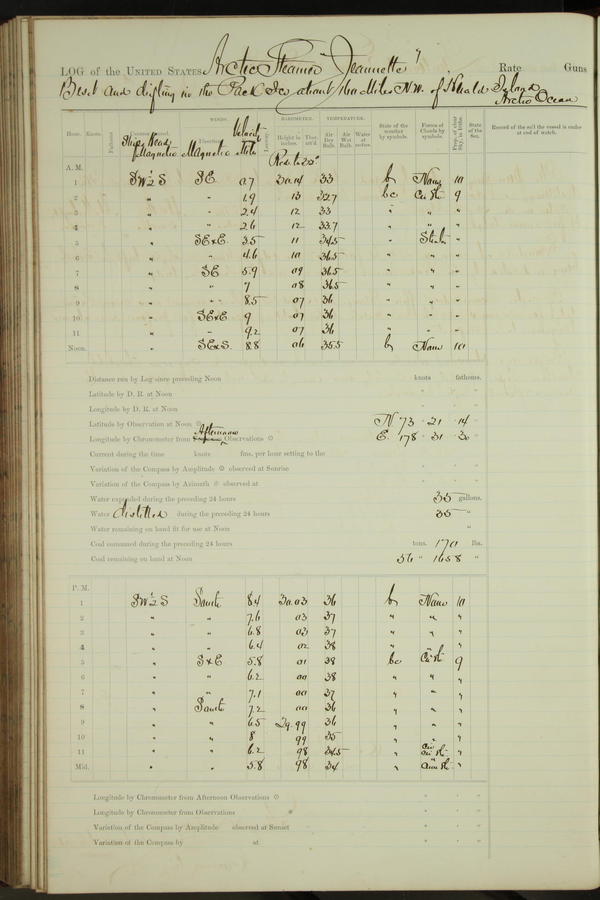 LOG of the UNITED STATES Arctic Steamer Jeannette Rate Guns
Beset and drifting in the Pack Ice about 160 Miles NW. of Herald Island
Arctic Ocean
WINDS. BAROMETER. TEMPERATURE.
Hour. Knots. Fathoms. Height in inches. Ther. att'd. Air Dry Bulb. Air Wet Bulb. Water at surface. State of the weather by symbols. Forms of Clouds by symbols. State of the Sea. Record of the sail the vessel is under at end of watch.
Ship's Head Magnetic Magnetic
A. M.
1 SW½S SE 0.7 30.14 33 b None 10
2 " " 1.9 13 32.7 bc Cir St 9
3 " " 2.4 12 33 " " "
4 " " 2.6 12 33.7 " " "
5 " SExE 3.5 11 34.5 " "
6 " " 4.6 10 36.5 " " "
7 " SE 5.9 09 36.5 " " "
8 " " 7 08 36.5 " " "
9 " " 8.5 07 36 " " "
10 " SExE 9 07 36 " " "
11 " " 9.2 07 36 " " "
Noon. " SExS. 8.8 06 35.5 b None 10
Distance run by Log since preceding Noon knots fathoms.
Latitude by D. R. at Noon
Longitude by D. R. at Noon
Latitude by Observation at Noon N 73 21 14
Longitude by Chronometer from Afternoon Observations E. 178 31 30
Current during the time knots fms. per hour setting to the
Variation of the Compass by Amplitude observed at Sunrise
Variation of the Compass by Azimuth observed at
Water expended during the preceding 24 hours 35 gallons.
Water distilled during the preceding 24 hours 35 "
Water remaining on hand fit for use at Noon "
Coal consumed during the preceding 24 hours tons. 170 lbs.
Coal remaining on hand at Noon 56 " 1658 "
P. M.
1 SW½S South 8.4 30.03 36 b None 10
2 " " 7.6 03 37 " " "
3 " " 6.8 03 37 " " "
4 " " 6.4 02 38 " " "
5 " SxE 5.8 01 38 bc Cir St 9
6 " " 6.2 00 38 " " "
7 " " 7.1 00 37 " " "
8 " South 7.2 00 36 " " "
9 " " 6.5 29.99 36 " " "
10 " " 8 99 35 " " "
11 " " 6.2 98 34.5 " Cir St "
Mid. " " 5.8 98 34 " "
Longitude by Chronometer from Afternoon Observations
Longitude by Chronometer from Observations
Variation of the Compass by Amplitude observed at Sunset
Variation of the Compass by at